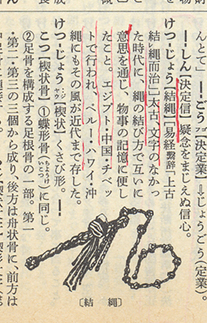 んとて」 ━ごう【決定業】⇒じょうごう（定業）。
━しん【決定信】疑念をまじえぬ信心。
けつ・じょう【結縄】［易経繋辞「上古
結レ縄而治」］太古、文字のなかっ
た時代に、縄の結び方で互いに
意思を通じ、物事の記憶に便し
たこと。エジプト・中国・チベッ
トで行われ、ペルー・ハワイ・沖
縄にもその風が近代まで存した。
けつ・じょう【楔状】くさび形。━・
こつ【楔状骨】①蝶形骨（ちょうけいこつ）に同じ。
②足骨を構成する足根骨の一部。第一
・第二・第三の三個から成り、後方は舟状骨に、前方は
［結縄］